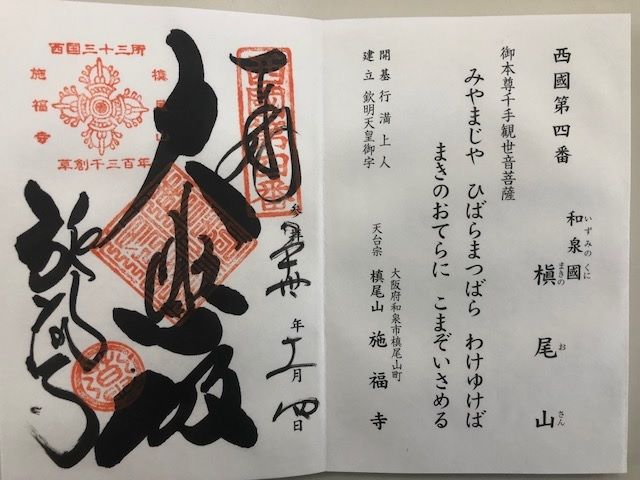 西國第四番
和泉國 槇尾山
いずみの くに まきの お さん
御本尊千手観世音菩薩
みやまじや ひばらまつばら わけゆけば
まきのおてらに こまぞいさめる
開基 行満上人
建立 欽明天皇御宇
大阪府和泉市槙尾山町
天台宗 槙尾山 施福寺
奉拝
西國第四番
参拝
年
月
日
大悲殿
西国三十三所
施福寺
草創千三百年
施福寺